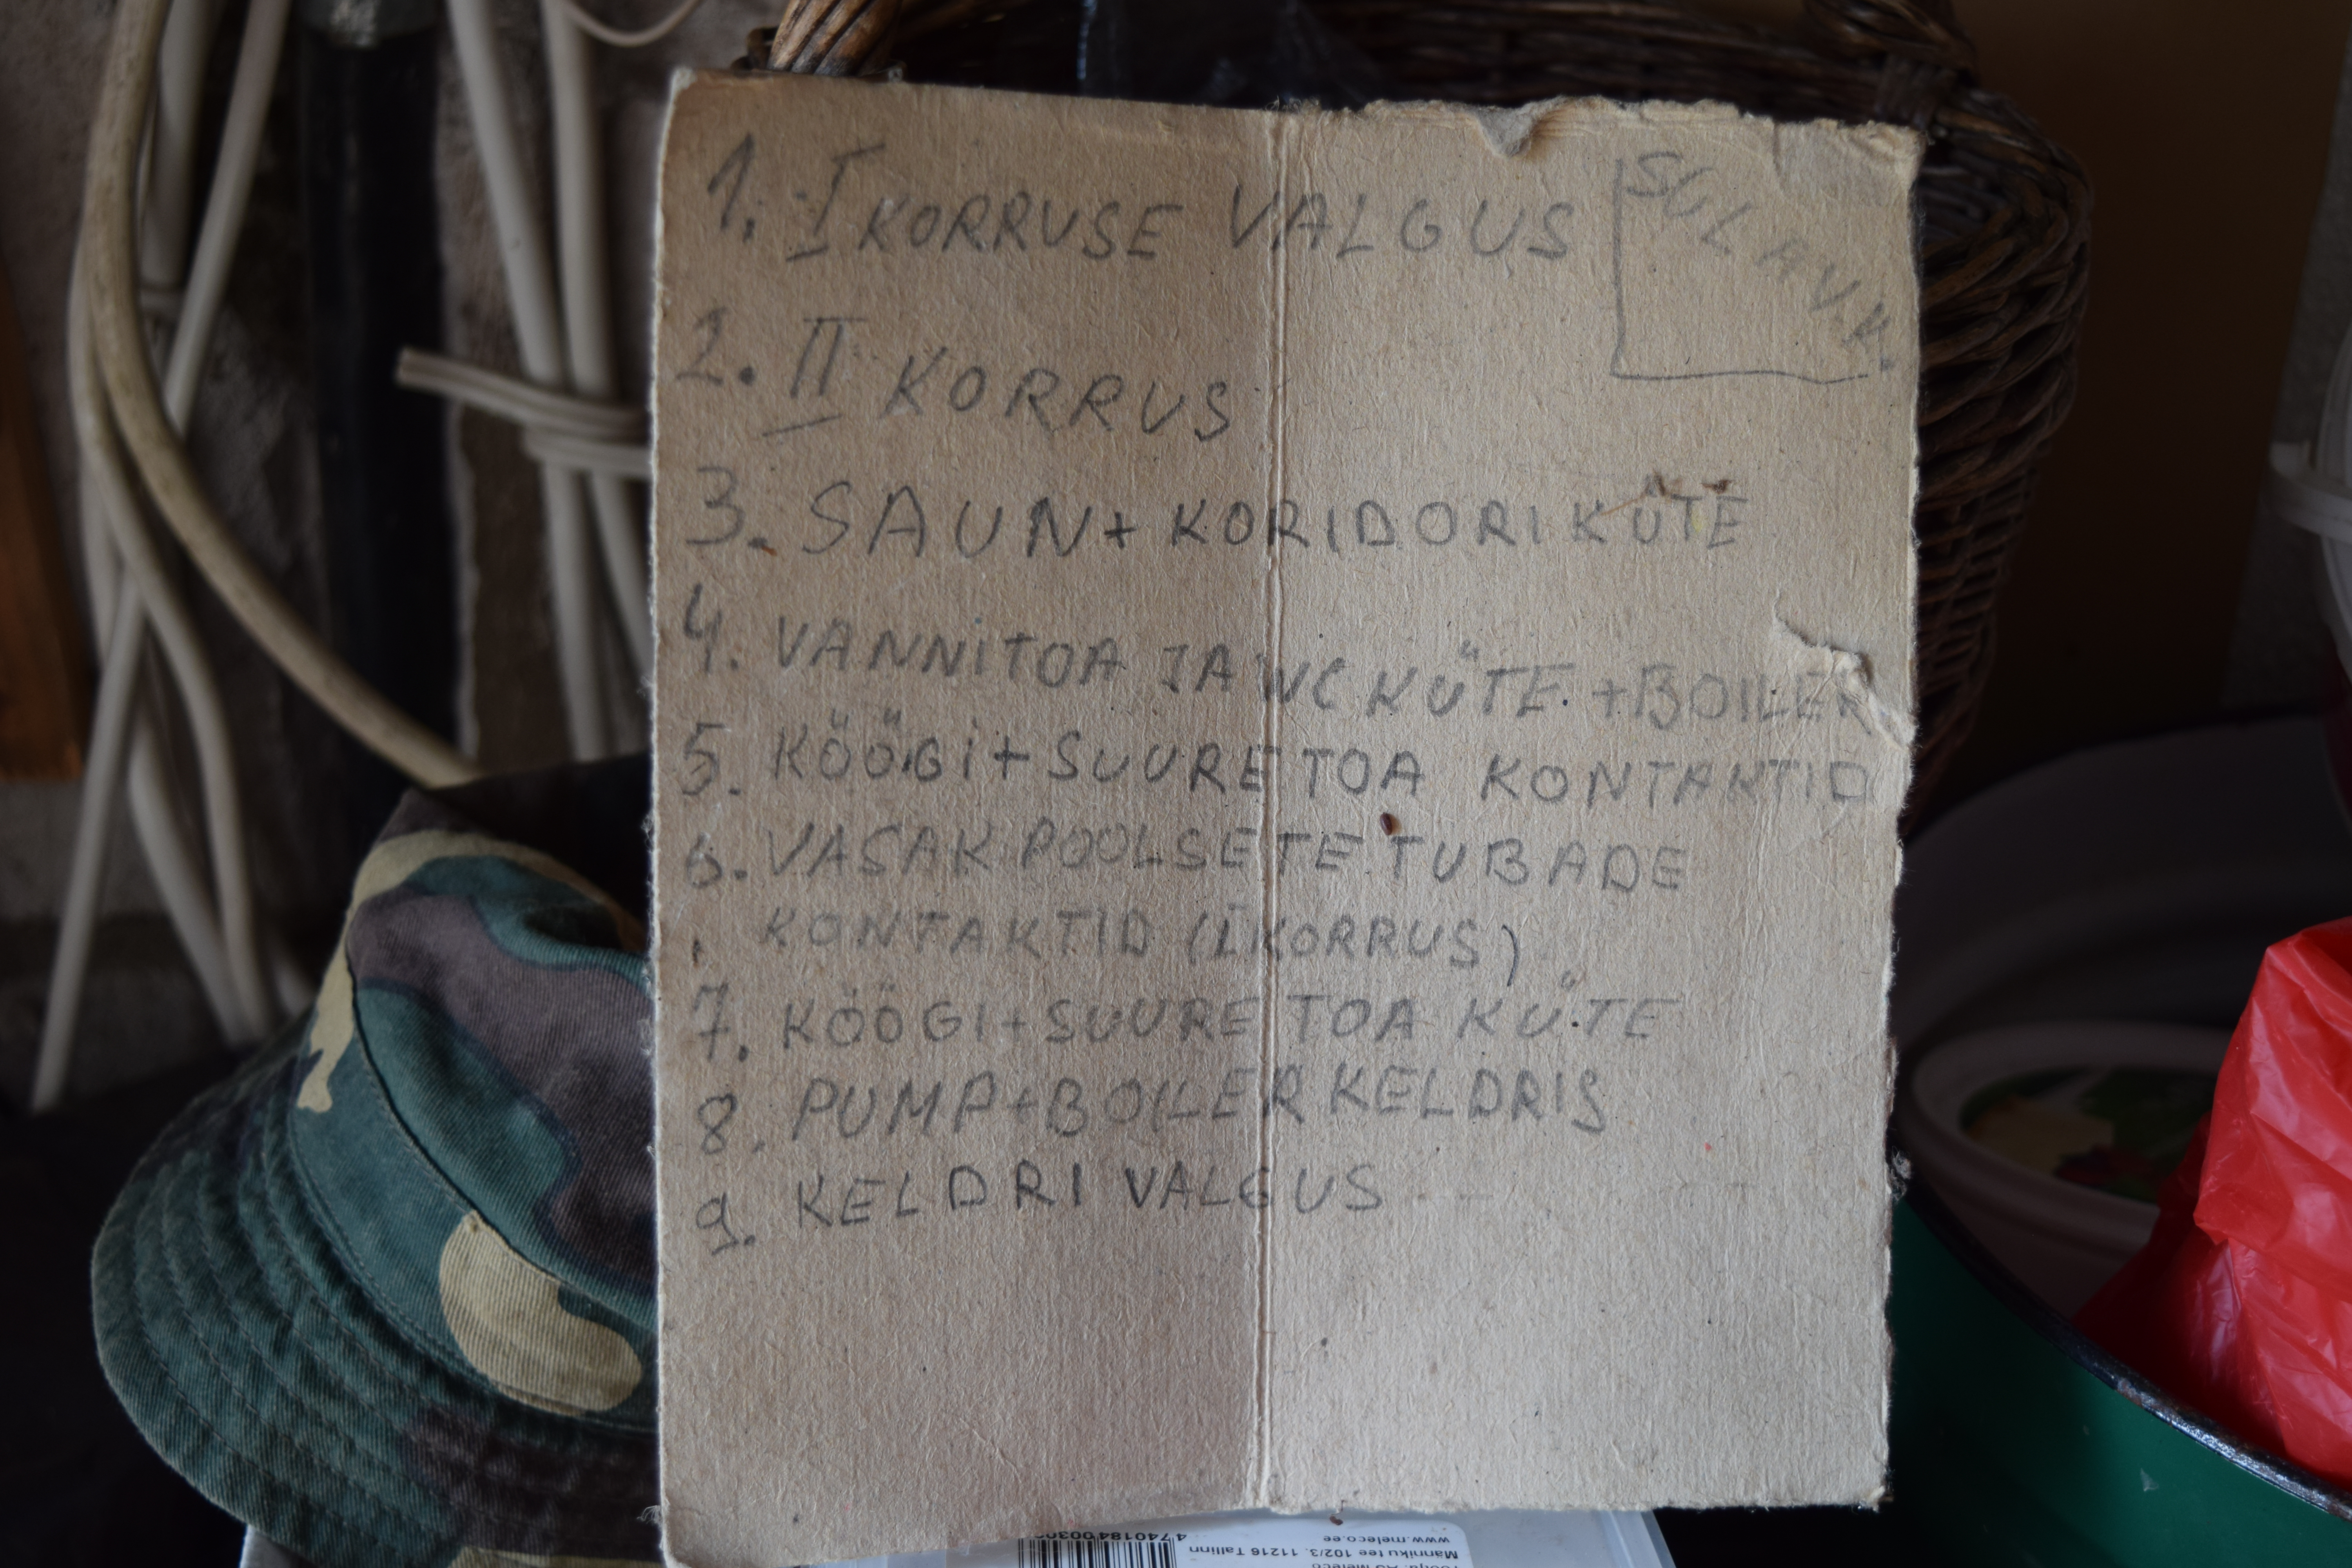 1. I KORRUSE VALGUS
SULAV.K.
2. II KORRUS
3. SAUN + KORIDORI KÜTE
4. VANNITOA JA WC KÜTE. + BOILER
5. KÖÖGI + SUURE TOA KONTAKTID
6. VASAK POOLSETE TUBADE
KONTAKTID (I KORRUS)
7. KÖÖGI + SUURE TOA KÜTE
8. PUMP + BOILER KELDRIS
9. KELDRI VALGUS
Männiku tee 102/3, 11216 Tallinn
www.meleco.ee